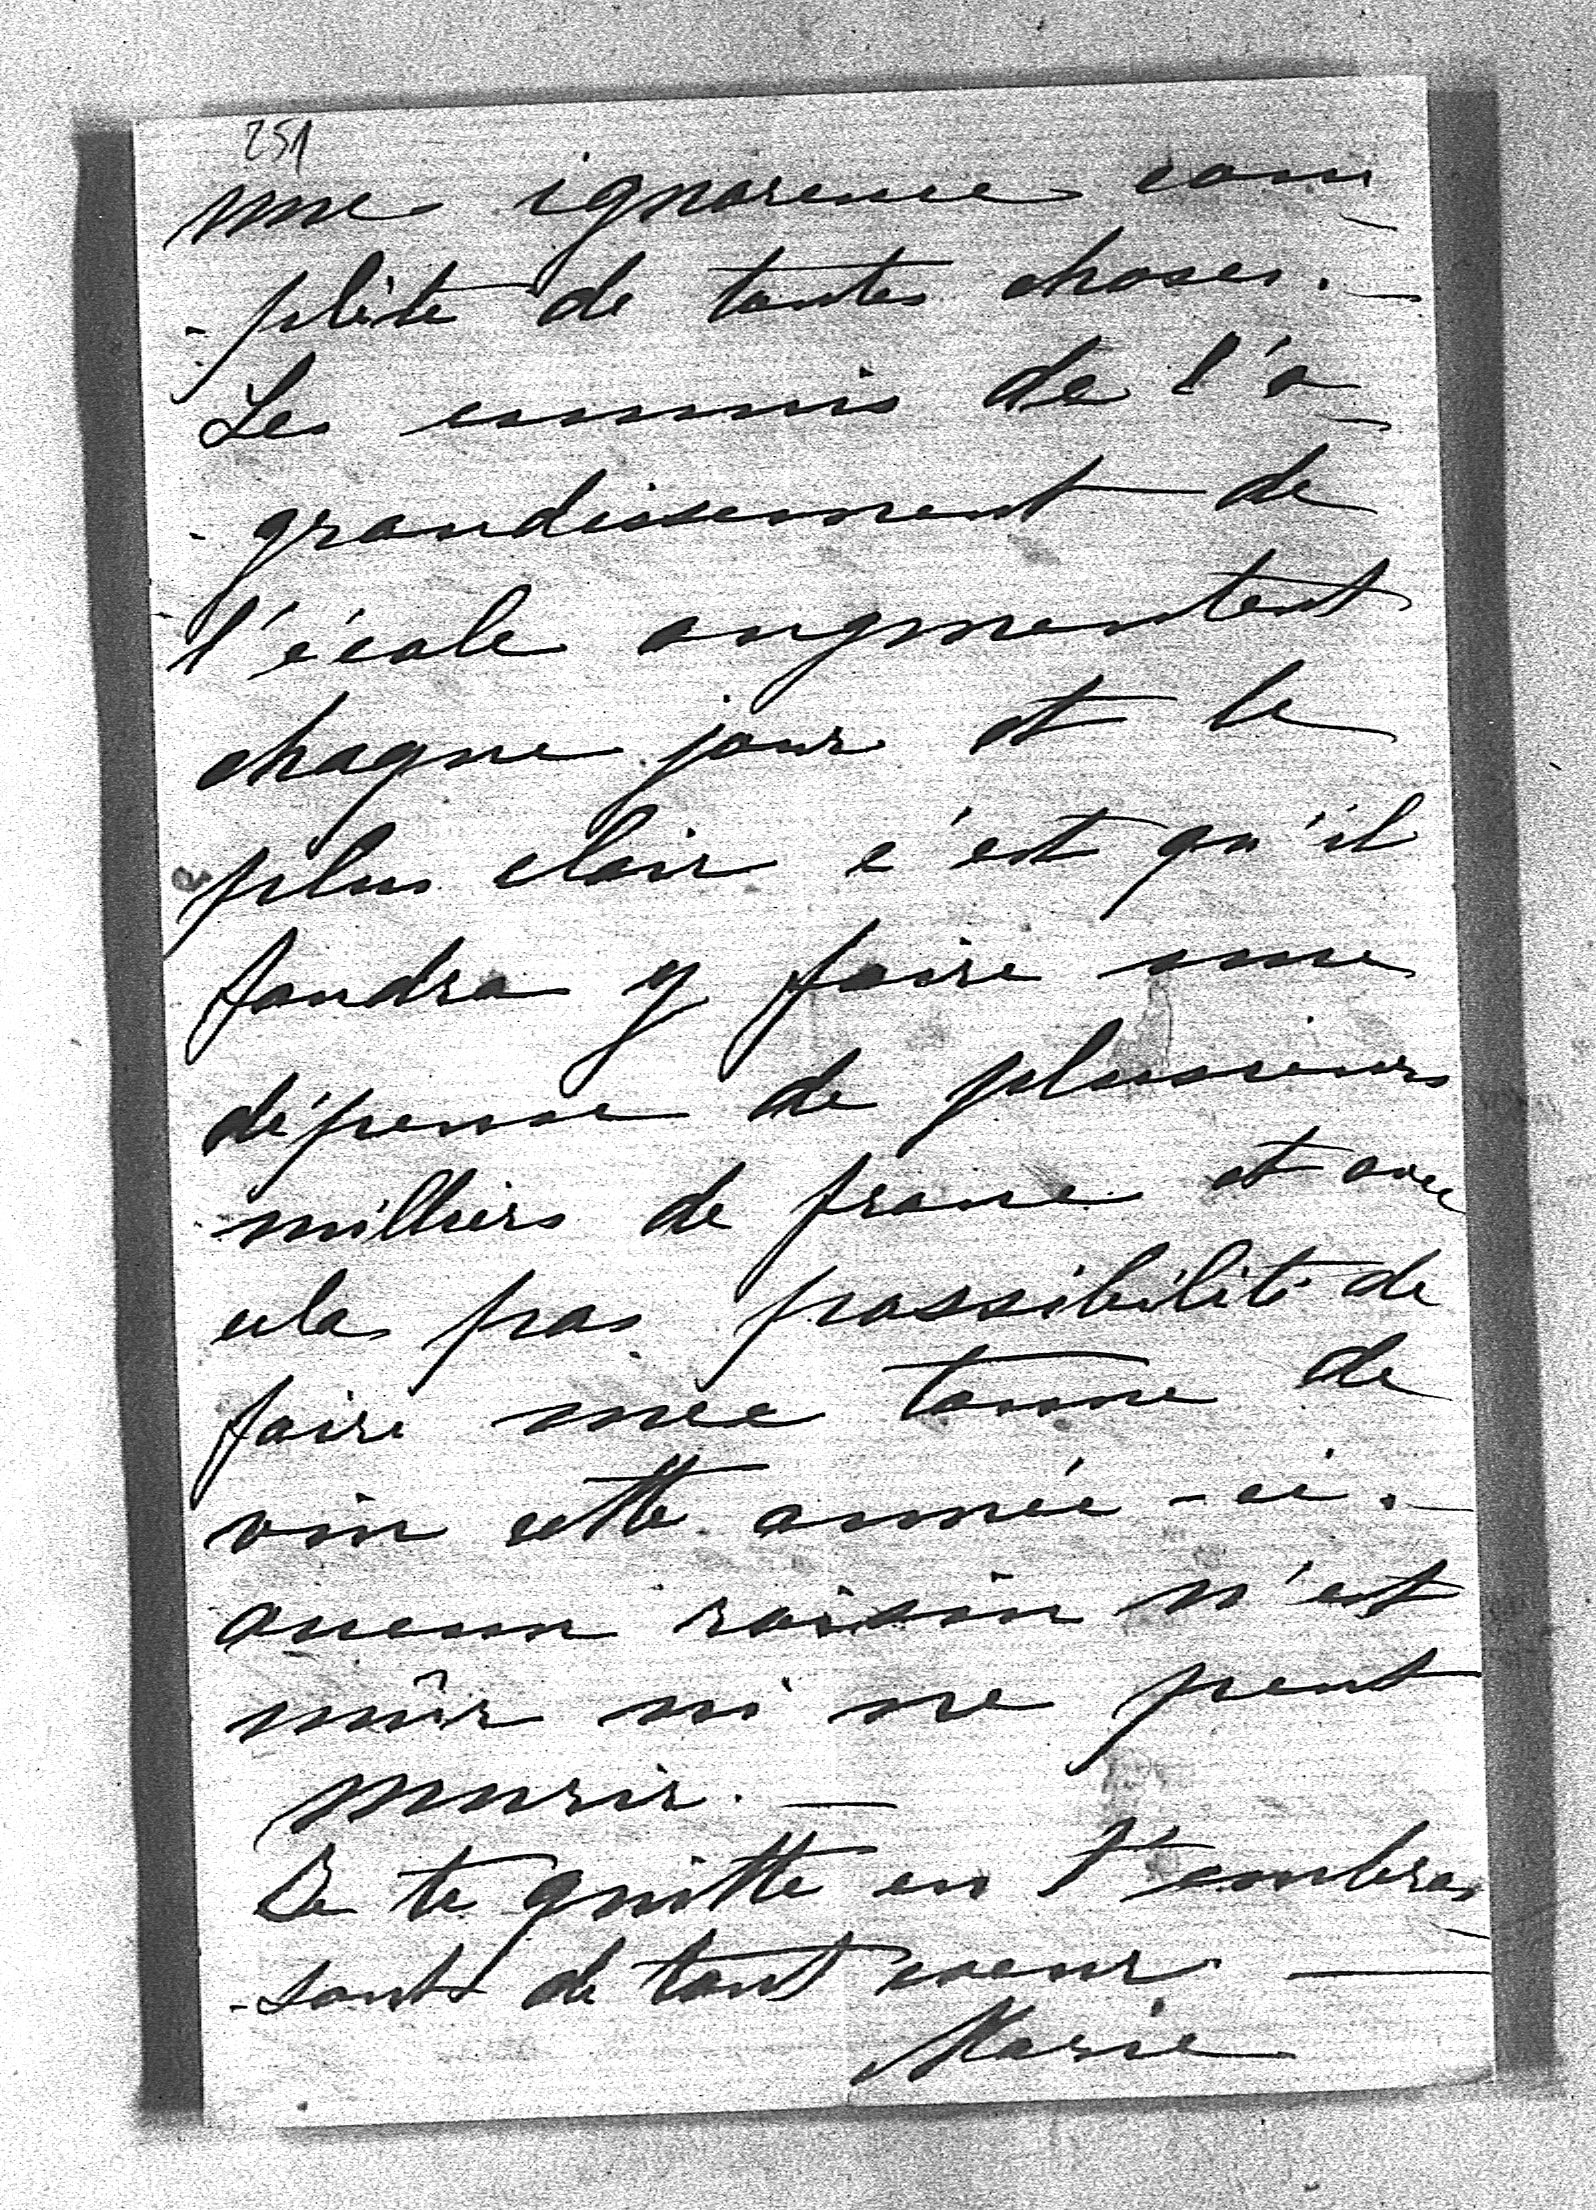 251
une ignorence com
-plète de toutes choses. —
Les ennuis de l'a
-grandissement de
l'école augmentent
chaque jour et le
plus clair c'est qu'il
faudra y faire une
dépense de plusieurs
milliers de franc et avec
cela pas possibilité de
faire une tonne de
vin cette année-ci. —
aucun raisin n'est
mûr ni ne peut
murir. —
Je te quitte en t'embras
-sant de tout coeur —
Marie